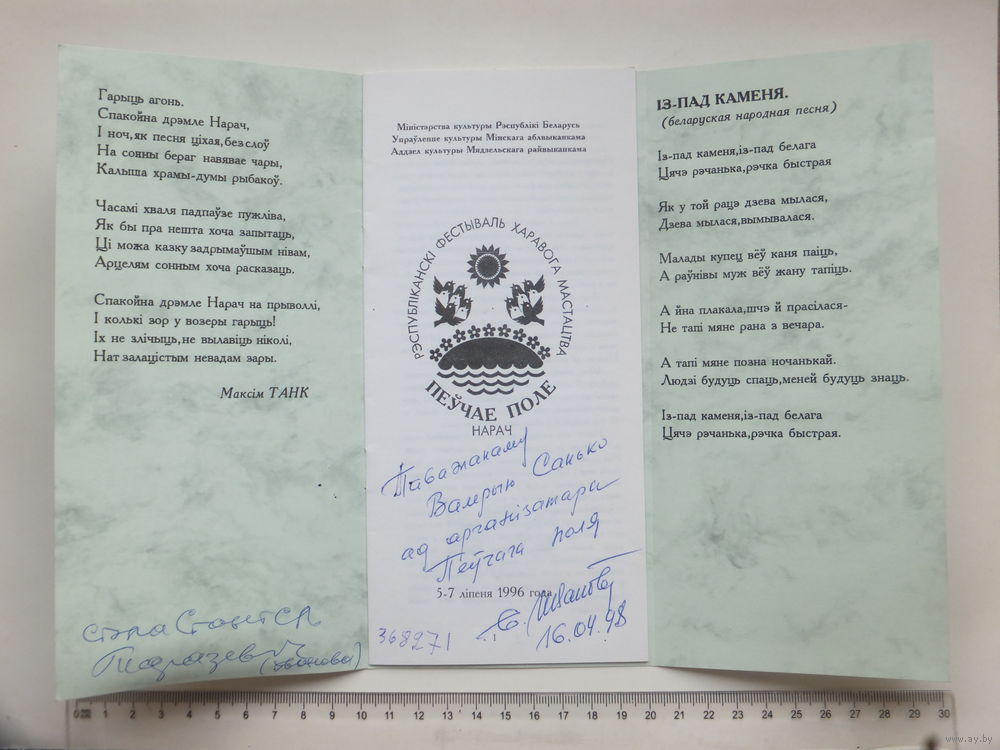 Гарыць агонь.
Спакойна дрэмле Нарач,
І ноч,як песня ціхая,без слоў
На сонны бераг навявае чары,
Калыша храмы-думы рыбакоў.
Часамі хваля падпаўзе пужліва,
Як бы пра нешта хоча запытаць,
Ці можа казку задрымаўшым нівам,
Арцелям сонным хоча расказаць.
Спакойна дрэмле Нарач на прыволлі,
І колькі зор у возеры гарыць!
Іх не злічыць,не вылавіць ніколі,
Нат залацістым невадам зары.
Максім ТАНК
Міністэрства культуры Рэспублікі Беларусь
Упраўленне культуры Мінскага аблвыканкама
Аддзел культуры Мядзельскага райвыканкама
РЭСПУБЛІКАНСКІ ФЕСТЫВАЛЬ ХАРАВОГА МАСТАЦТВА
ПЕЎЧАЕ ПОЛЕ
НАРАЧ
Паважанаму
Валерыю Санько
ад арганізатара
Пеўчага поля
5-7 ліпеня 1996 года
16.04.98
368271
ІЗ-ПАД КАМЕНЯ.
(беларуская народная песня)
Із-пад каменя,із-пад белага
Цячэ рэчанька,рэчка быстрая
Як у той рацэ дзева мылася,
Дзева мылася,вымывалася.
Малады купец вёў каня паіць,
А раўнівы муж вёў жану тапіць.
А йна плакала,шчэ й прасілася-
Не тапі мяне рана з вечара.
А тапі мяне позна ночанькай.
Людзі будуць спаць,меней будуць знаць.
Із-пад каменя,із-пад белага
Цячэ рэчанька,рэчка быстрая.
0 1 2 3 4 5 6 7 8 9 10 11 12 13 14 15 16 17 18 19 20 21 22 23 24 25 26 27 28 29 30
www.ay.by